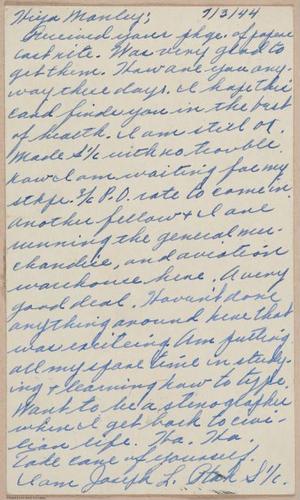 Hiya Manley; 7/3/44
Received your pkge. of papers
last nite. Was very glad to
get them. How are you any-
way these days. I hope this
card finds you in the best
of health. I am still ok.
Made S1/c with no trouble.
Now I am waiting for my
stkpr. 3/c P.O. rate to come in.
Another fellow & I are
running the general mer-
chandise, and aviation
warehouse here. A very
good deal. Haven't done
anything around here that
was exciteing. Am putting
all my spare time in study-
ing & learning how to type.
Want to be a stenographer
when I get back to civi-
lian life. Ha. Ha.
Take care of yourself.
I am Joseph L. Ptak S1/c.